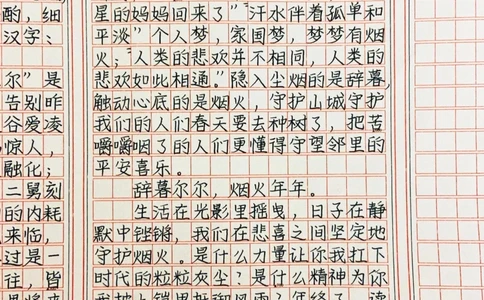 酌，细
汉字：
尔”是
告别昨
谷爱凌
惊人，
融化；
二舅刻
的内耗
来临，
过是一
往，皆
星的妈妈回来了”“汗水伴着孤单和
平淡”个人梦，家国梦，梦梦有烟
火；“人类的悲欢并不相同，人类的
悲欢如此相通。”隐入尘烟的是辞暮，
触动心底的是烟火，守护山城守护
我们的人们春天要去种树了，把苦
嚼嚼咽了的人们更懂得守望邻里的
平安喜乐。
辞暮尔尔，烟火年年。
生活在光影里摇曳，日子在静
默中铿锵，我们在悲喜之间坚定地
守护烟火。是什么力量让你我扛下
时代的粒粒灰尘？是什么精神为你